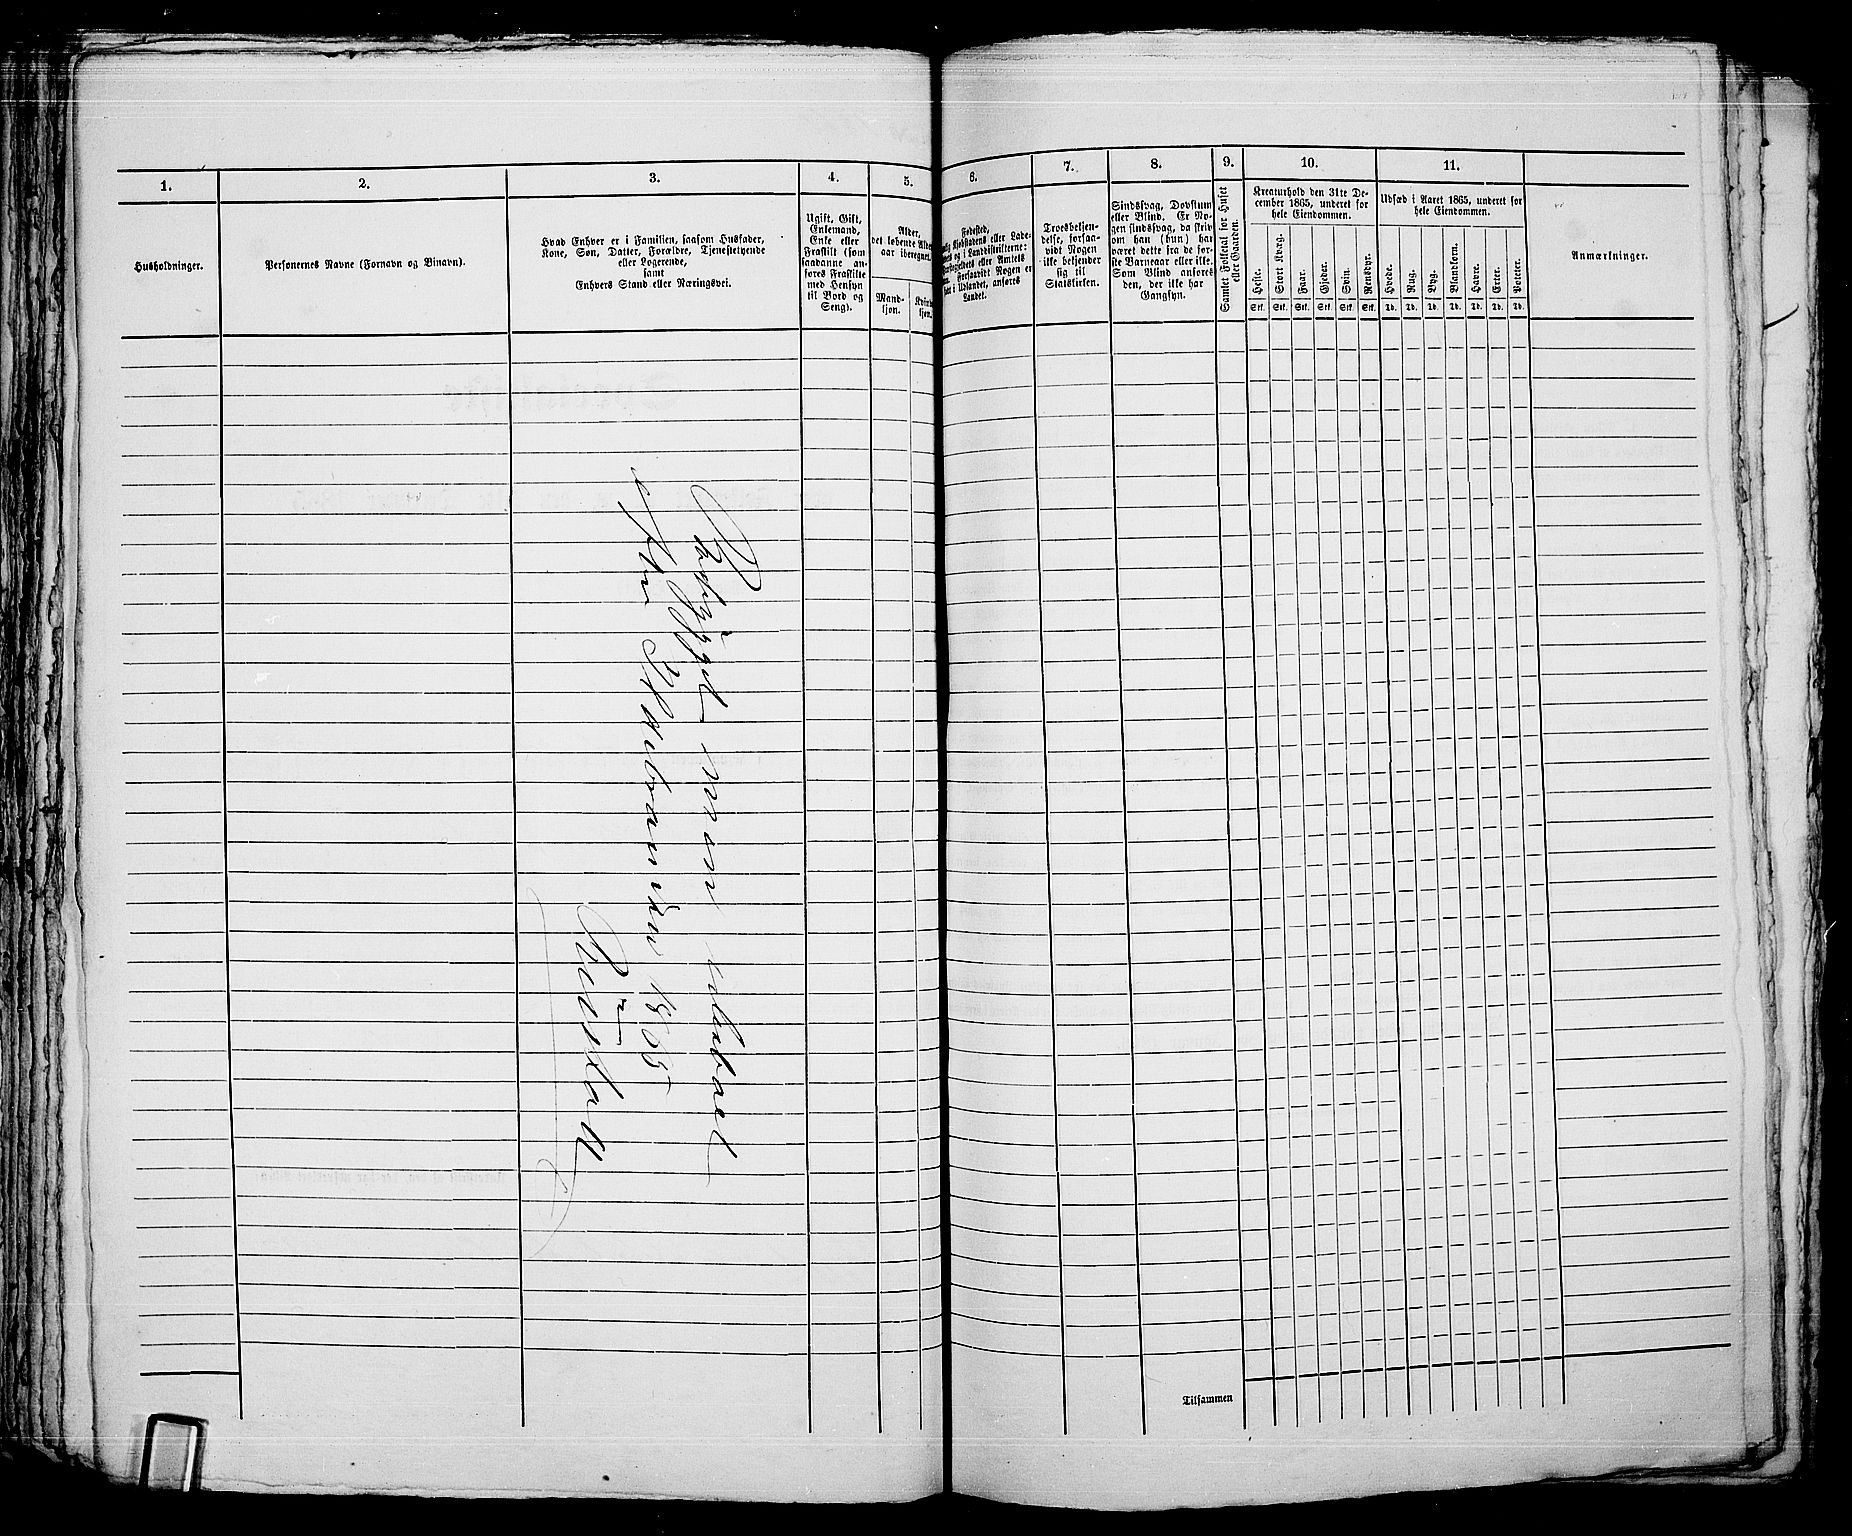 1.
Husholdninger.
2.
Personernes Navne (Fornavn og Binavn).
3.
Hvad Enhver er i Familien, saasom Husfader,
Kone, Søn, Datter, Forældre, Tjenestetyende
eller Logerende,
samt
Enhvers Stand eller Næringsvei.
4.
Ugift, Gift,
Enkemand,
Enke eller
Fraskilt (som
saadanne an-
føres Fraskilte
med Hensyn
til Bord og
Seng).
5.
Alder,
det løbende Alders-
aar iberegnet.
Mand-
kjøn.
Kvinde-
kjøn.
6.
Fødested,
Kjøbstadens eller Lade-
i Landdistrifterne:
eller Amtets
Forsaavidt Nogen er
født i Udlandet, anføres
Landet.
7.
Troesbekjen-
delse, forsaa-
vidt Nogen
ikke bekjender
sig til
Statskirken.
8.
Sindssvag, Døvstum
eller Blind. Er No-
gen sindssvag, da skriv
om han (hun) har
været dette fra de før-
ste Barneaar eller ikke.
Som Blind anføres
den, der ikke har
Gangsyn.
9.
Samlet Folketal for Huset
eller Gaarden.
10.
Kreaturhold den 31te De-
cember 1865, underet for
hele Eiendommen.
Heste.
Stort Kvæg.
Faar.
Gjeder.
Svin.
Rensdyr.
Stk. Stk. Stk. Stk. Stk. Stk.
11.
Udsæd i Aaret 1865, underet for
hele Eiendommen.
Hvede.
Rug.
Byg.
Blandkorn.
Havre.
Erter.
Poteter.
Td. Td. Td. Td. Td. Td. Td.
Anmærkninger.
Bebygget men ubeboet
efter Ildebranden 1865
Tilsammen